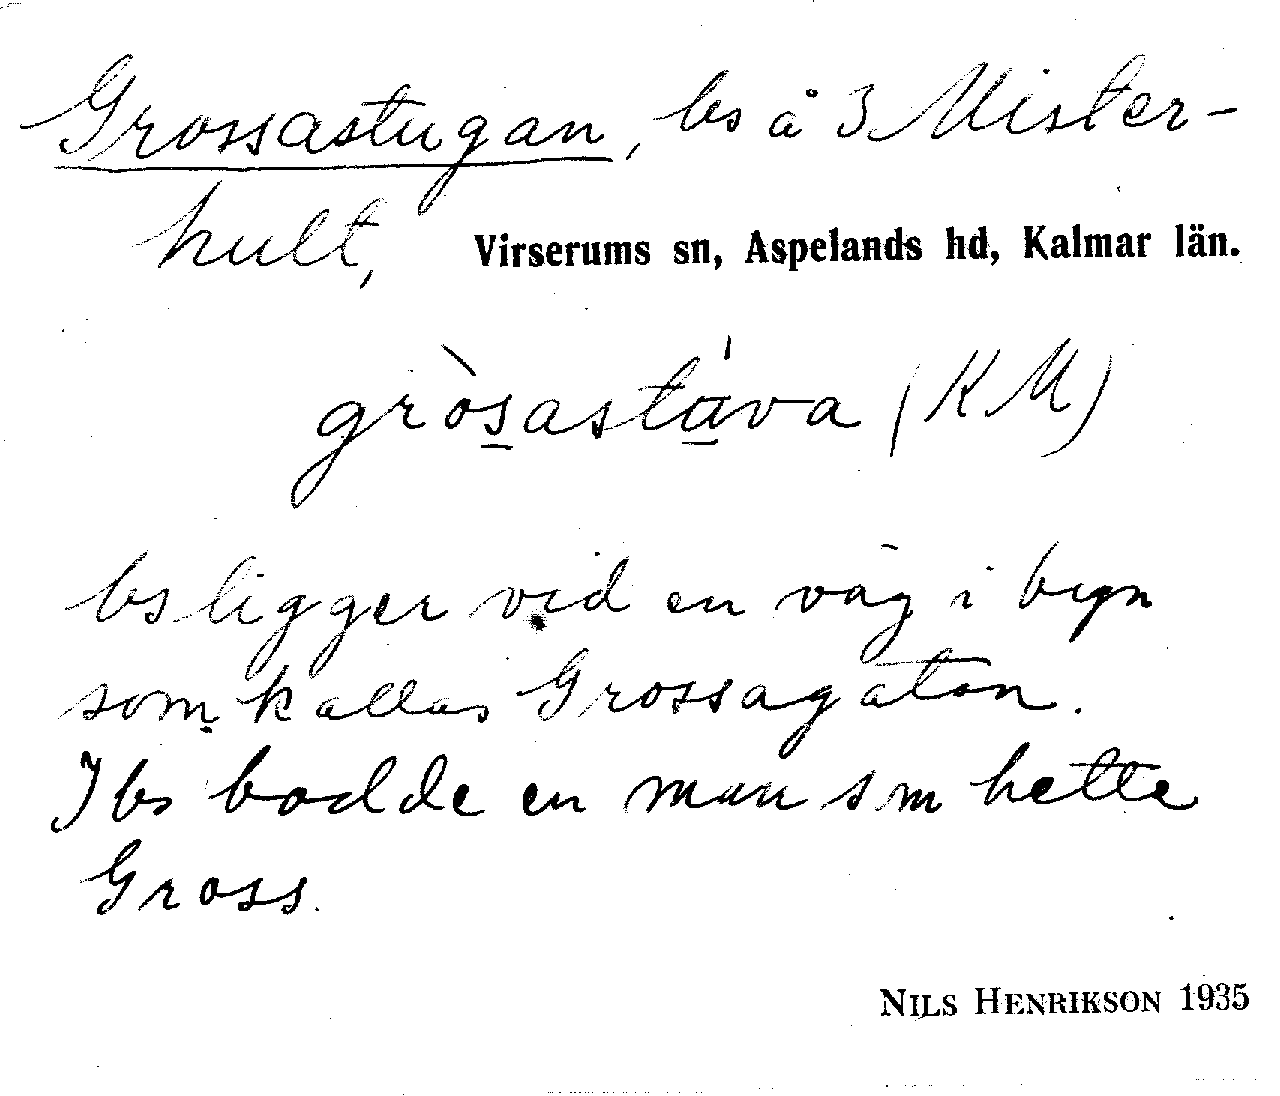 Grossastugan, bs å 3 Mister-
hult, Virserums sn, Aspelands hd, Kalmar län.
gròsastáva (KM)
bs ligger vid en väg i byn
som kallas Grossagatan.
I bs bodde en man sm hette
Gross.
NILS HENRIKSON 1935